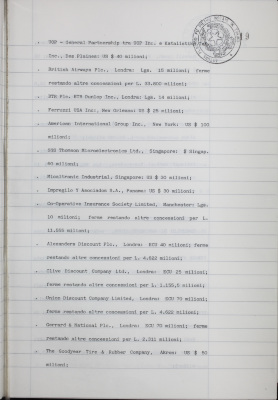 . UOP - General Partnership tra UOP Inc. e Katalistiks
Inc., Des Plaines: US $ 40 milioni;
. British Airways Plc., Londra: Lgs. 15 milioni; fermo
restando altre concessioni per L. 30.600 milioni;
. STM Plc. Londra: Lgs. 14 milioni;
. Ferruzzi USA Inc., New Orleans: US $ 25 milioni;
. American International Group Inc., New York: US $ 100
milioni;
. SGS Thomson Microelectronics Ltd., Singapore: $ Singap.
milioni;
. Miniltronic Industrial, Singapore: US $ 30 milioni;
. Impregilo Y Asociados S.A., Panama: US $ 30 milioni;
. Co-Operative Insurance Society Limited, Manchester: Lgs.
10 milioni; fermo restando altre concessioni per L.
11.555 milioni;
. Alexanders Discount Plc., Londra: ECU 40 milioni; fermo
restando altre concessioni per L. 4.622 milioni;
. Clive Discount Company Ltd., Londra: ECU 25 milioni;
fermo restando altre concessioni per L. 1.155,5 milioni;
. Union Discount Company Limited, Londra: ECU 70 milioni;
fermo restando altre concessioni per L. 4.622 milioni;
. Gerrard & National Plc., Londra: ECU 70 milioni; fermo
restando altre concessioni per L. 2.311 milioni;
. The Goodyear Tire & Rubber Company, Akron: US $ 50
milioni;